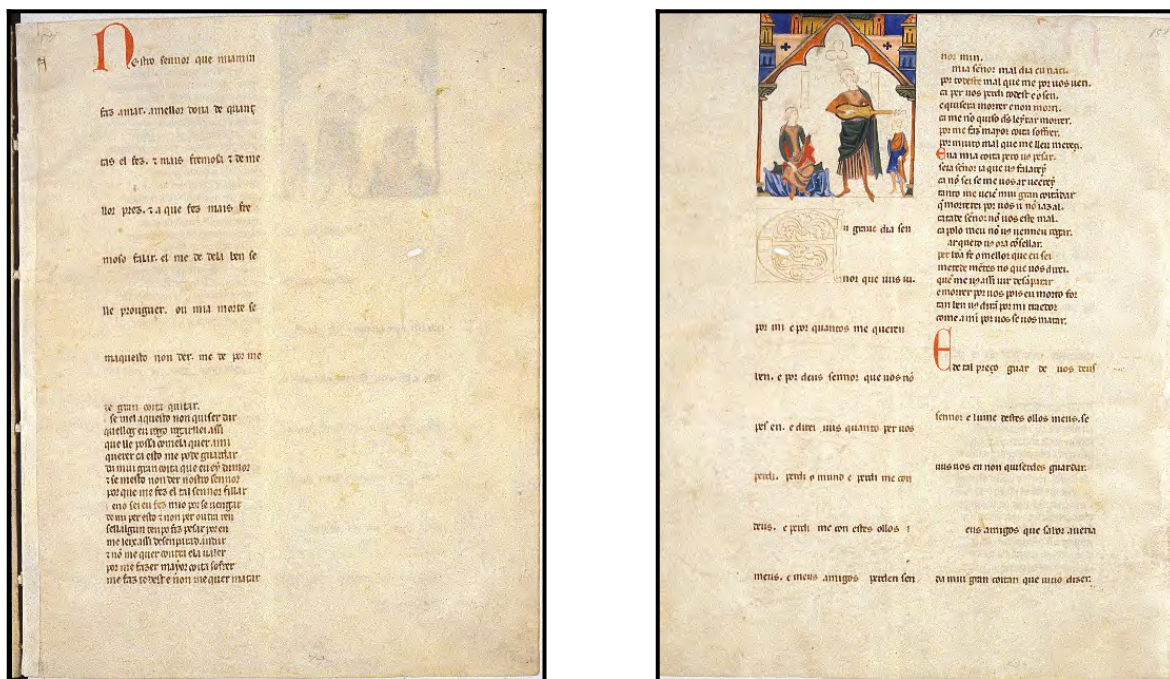 Nostro sennor que miamin
faz amar. amellor dona de quant
tas el fez. ⁊ mais fremosa ⁊ de me
llor prez. ⁊ a que fez mais fre
moso falar. el me de dela ben se
lle prouguer. ou mia morte se
maquesto non der. me de por me
de gran coita quitar.
se mel aquesto non quiser dar
que lle possa comela quer ami
querer ca esto me pode guardar
da mui gran coita que eu ey damor
⁊ se mesto non der nostro sennor
por que me fez el tal sennor fillar
eno sei eu fez mio por se uengar
de mi per esto ⁊ non per outra ren
me leixassi desenparad andar
⁊ nõ me quer contra ela ualer
por me fazer mayor coita sofrer
me faz todest e non me quer matar
En graue dia sen
nor que uus iu.
por mi e por quantos me queren
ben. e por deus sennor que uos nõ
pes en. e direi uus quanto per uos
perdi. perdi o mundo e perdi me con
deus. e perdi me con estes ollos
meus. e meus amigos perden sen
nor min.
mia señor mal dia eu naci.
por todeste mal que me por uos uen.
ca per uos perdi todest e o sen.
e quisera morrer e non morri.
ca me nõ quiso ds leyxar morrer.
por me faz mayor coita soffrer.
por muito mal que me lleu merecy.
Ena mia coita pero us pesar.
seia señor ia que us falarey
ca nõ sei se me uos ar ueerey
tanto me ueie mui gran coitãdar
q morrerei por uos u nõ iaz al.
catade señor nõ uos este mal.
ca polo meu nõ us uenneu rogar.
ar quero us ora cõsellar.
per bõa fe o mellor que eu sei
metede mẽtes no que uos direi.
que me us assi uir desãparar
e morrer por uos pois eu morto for
tan ben us dirã por mi traedor
come a mi por uos se uos matar.
E de tal preço guar de uos deus
sennor e lume destes ollos meus. se
uus uos en non quiserdes guardar.
eus amigos que sabor aueria
da mui gran coitan que uiuo dizer.